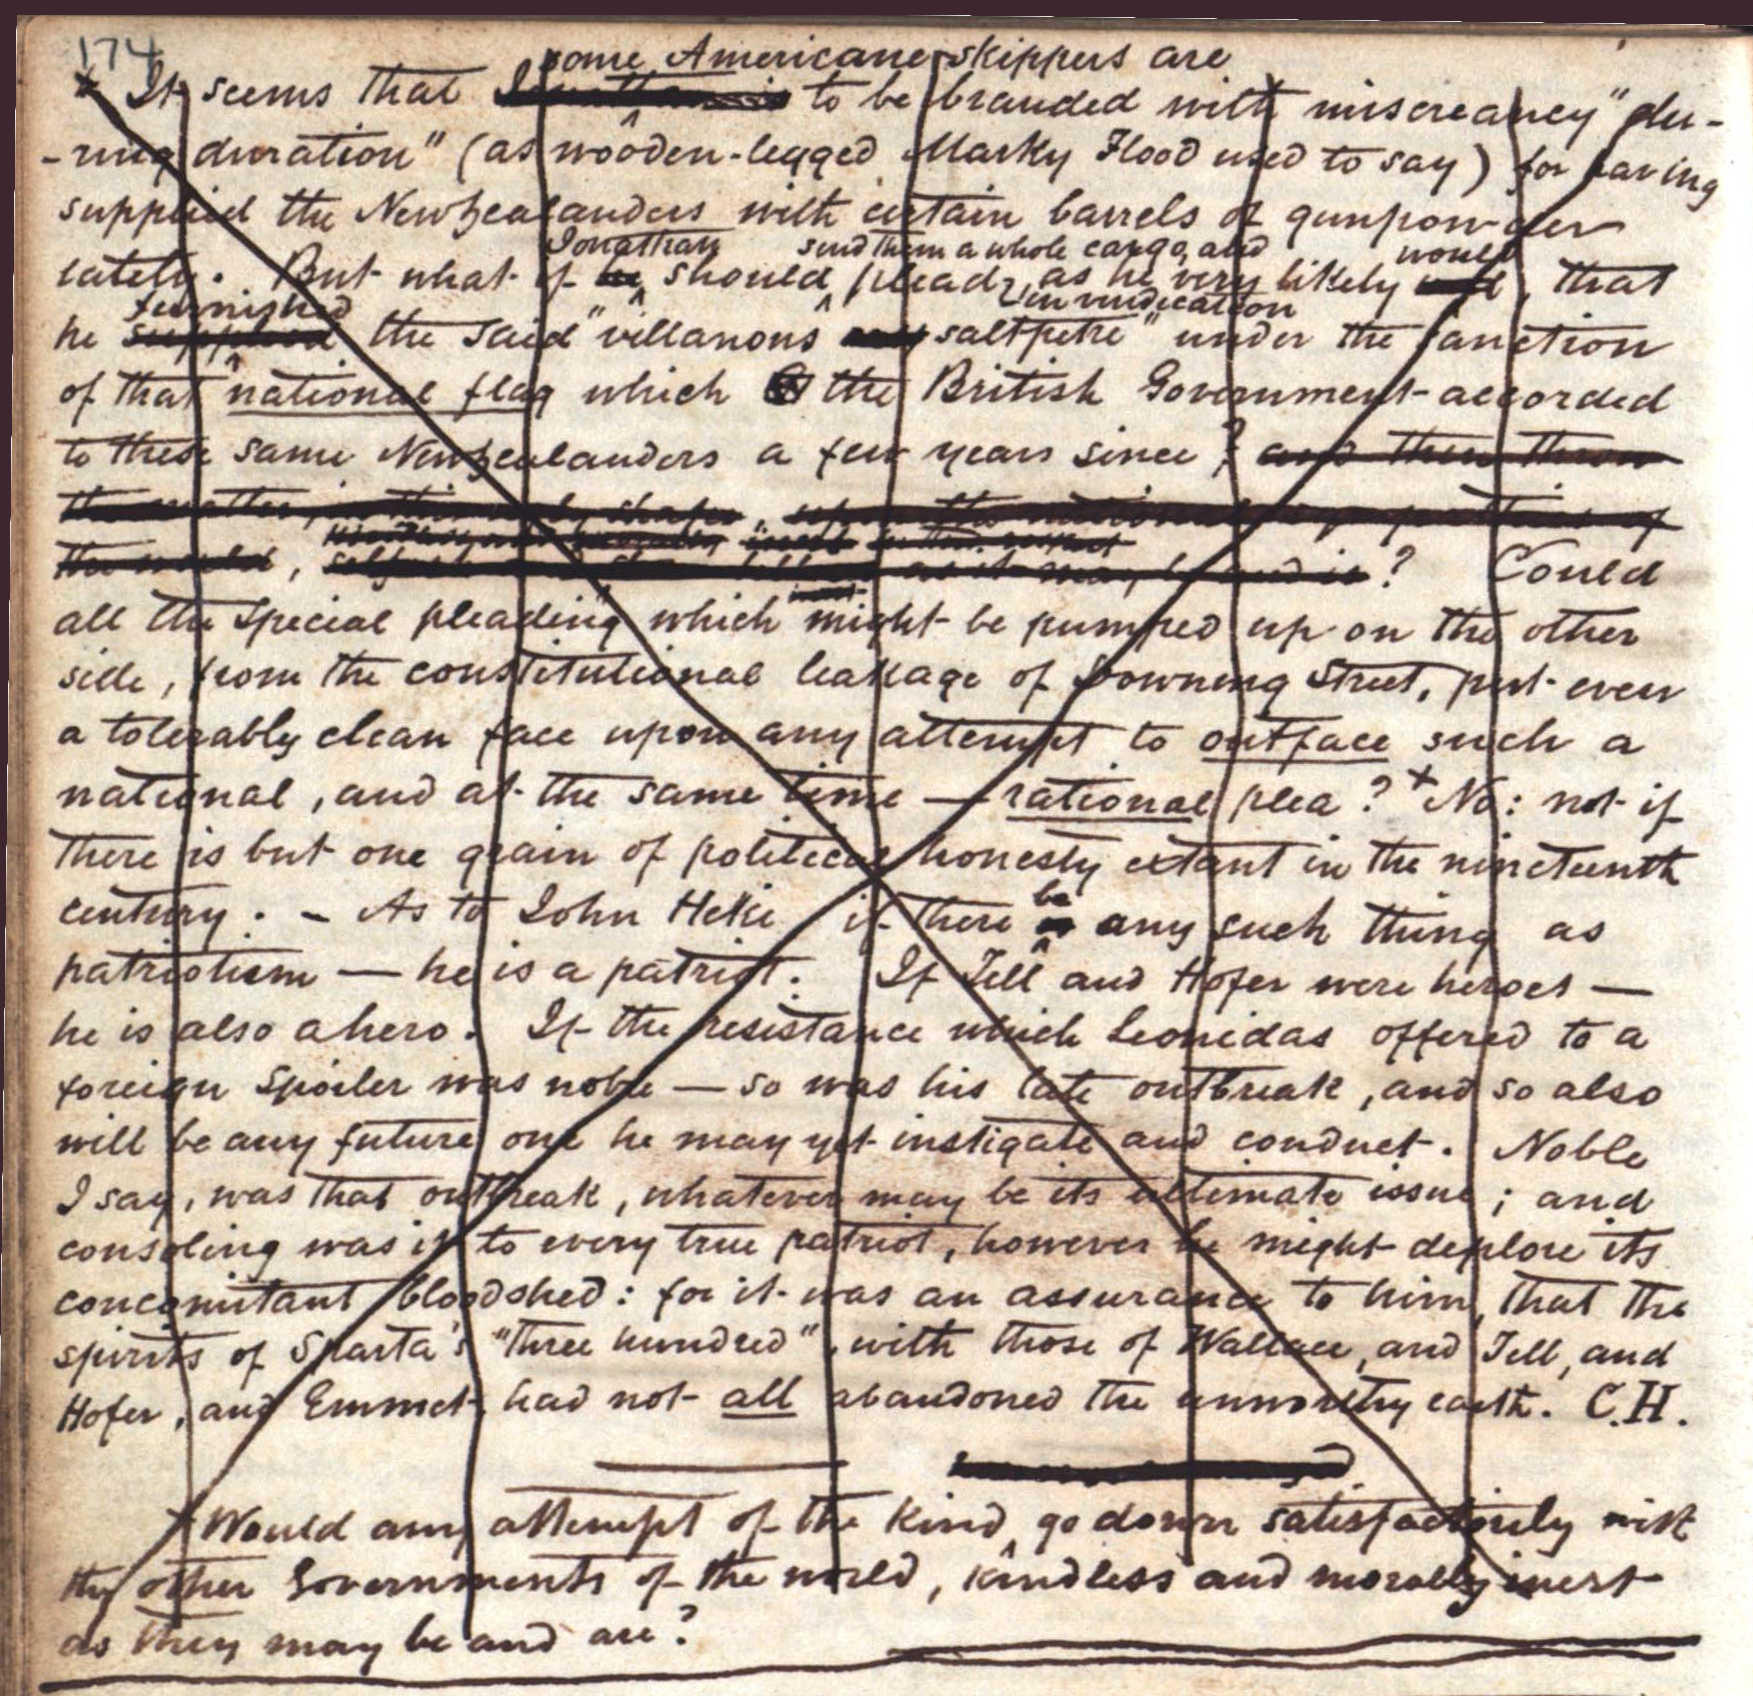 174
some American skippers are
+ It seems that to be branded with miscreancy "du-
-ring duration" (as wooden-legged Marky Flood used to say) for having
supplied the Newzealanders with certain barrels of gunpowder
Jonathan send them a whole cargo, and would
lately. But what if he should plead, as he very likely , that
furnished in vindication
he supplied the said "villanous saltpetre" under the sanction
of that national flag which the British Government accorded
to these same Newzealanders a few years since? and then throw
the matter,
the world, ? Could
all the special pleading which might be pumped up on the other
side, from the constitutional leakage of Downing Street, put even
a tolerably clean face upon any attempt to outface such a
national, and at the same time — rational plea? + No: not if
there is but one grain of political honesty extant in the nineteenth
be
century. – As to John Heke if there is any such thing as
patriotism — he is a patriot. If Tell and Hofer were heroes —
he is also a hero. If the resistance which Leonidas offered to a
foreign spoiler was noble — so was his late outbreak, and so also
will be any future one he may yet instigate and conduct. Noble
I say, was that outbreak, whatever may be its ultimate issue; and
consoling was it to every true patriot, however he might deplore its
concomitant bloodshed: for it was an assurance to him, that the
spirits of Sparta's "three hundred", with those of Wallace, and Tell, and
Hofer, and Emmet, had not all abandoned the unworthy earth. C.H.
+ Would any attempt of the kind go down satisfactorily with
the other Governments of the world, kindless and morally inert
as they may be and are?